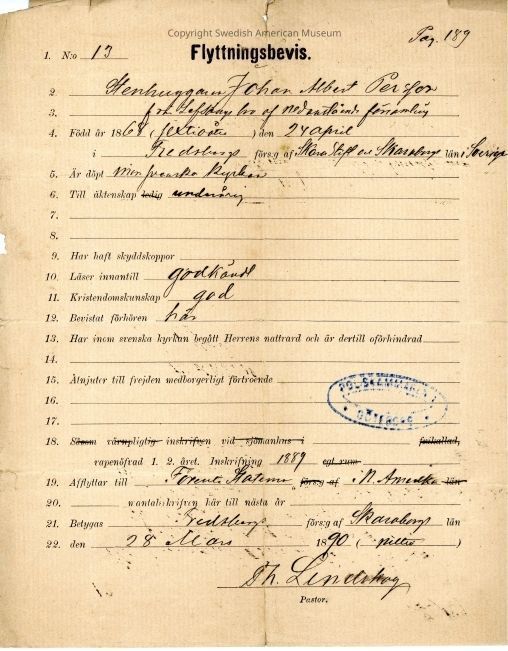 Copyright Swedish American Museum
Pag. 189
1. N:o 13
Flyttningsbevis.
2. Stenhuggaren Johan Albert Persson
3. frå af nedanstående församling
4. Född år 1868 (sextioåtta) den 24 april
i Fredsbergs förs:g af Skara Stift och Skaraborgs län i Sverige
5. Är döpt inom svenska kyrkan
6. Till äktenskap ledig underårig
7.
8.
9. Har haft skyddskoppor
10. Läser innantill godkändt
11. Kristendomskunskap god
12. Bevistat förhören här
13. Har inom svenska kyrkan begått Herrens nattvard och är dertill oförhindrad
14.
15. Åtnjuter till frejden medborgerligt förtroende
POLISKAMMAREN I
GÖTEBORG
16.
17.
18. Såsom värnpligtig inskrifven vid sjömanhus i frikallad,
vapenöfvad 1. 2. året. Inskrifning 1889 egt rum
19. Afflyttar till Förenta Staterna förs:g af N. Amerika län
20. mantalskrifven här till nästa år
21. Betygas Fredsberg förs:g af Skaraborgs län
22. den 28 Mars 1890 (nittio)
Th. Lindskog
Pastor.